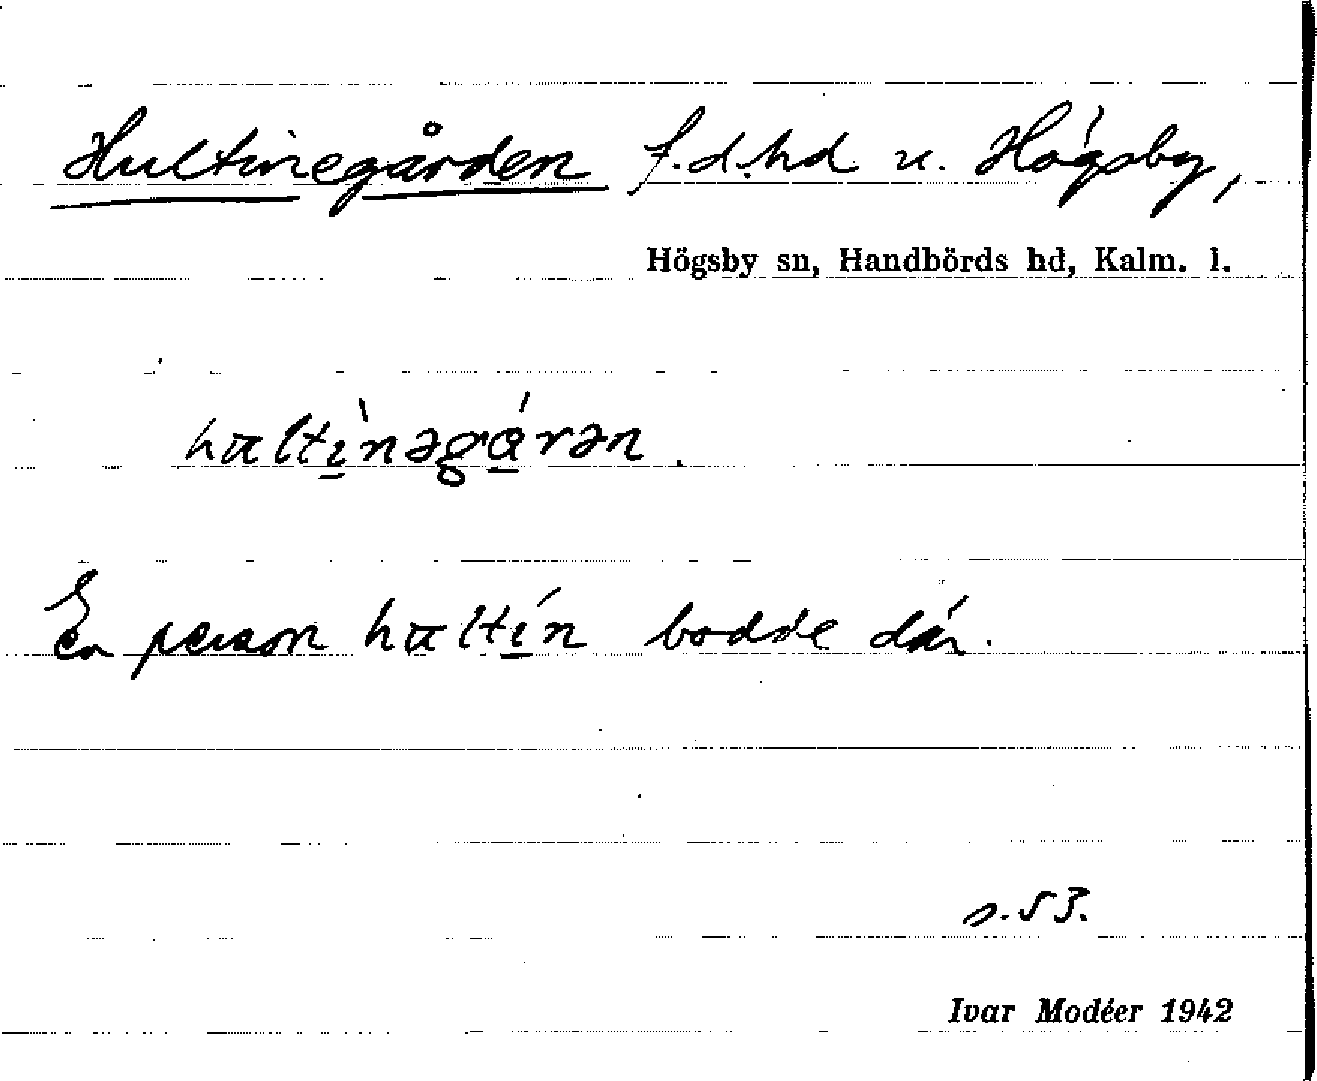 Hultinegården f.d.hd u. Högsby,
Högsby sn, Handbörds hd, Kalm. l.
hultìnəgárən.
En person hultín bodde där.
s. 53.
Ivar Modéer 1942